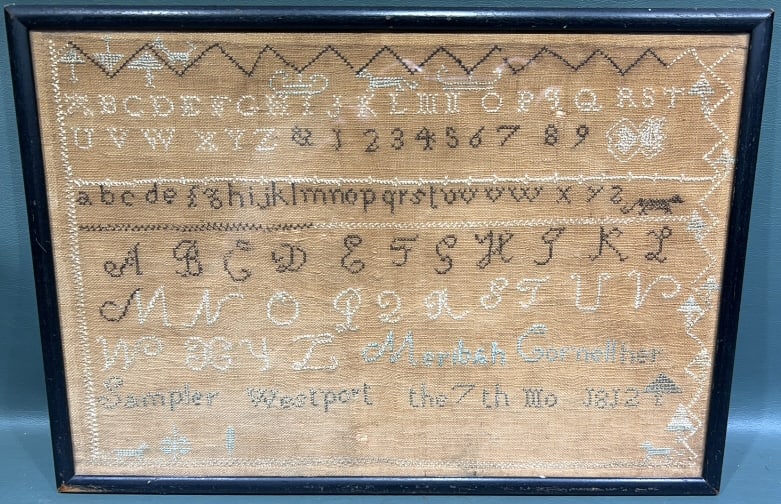 A B C D E F G H I J K L M N O P Q R S T
U V W X Y Z & 1 2 3 4 5 6 7 8 9
a b c d e f g h i j k l m n o p q r s t u v w x y z
A B C D E F G H I K L
M N O P Q R S T U V
W X Y Z
Sampler Westport the 7th mo 1812